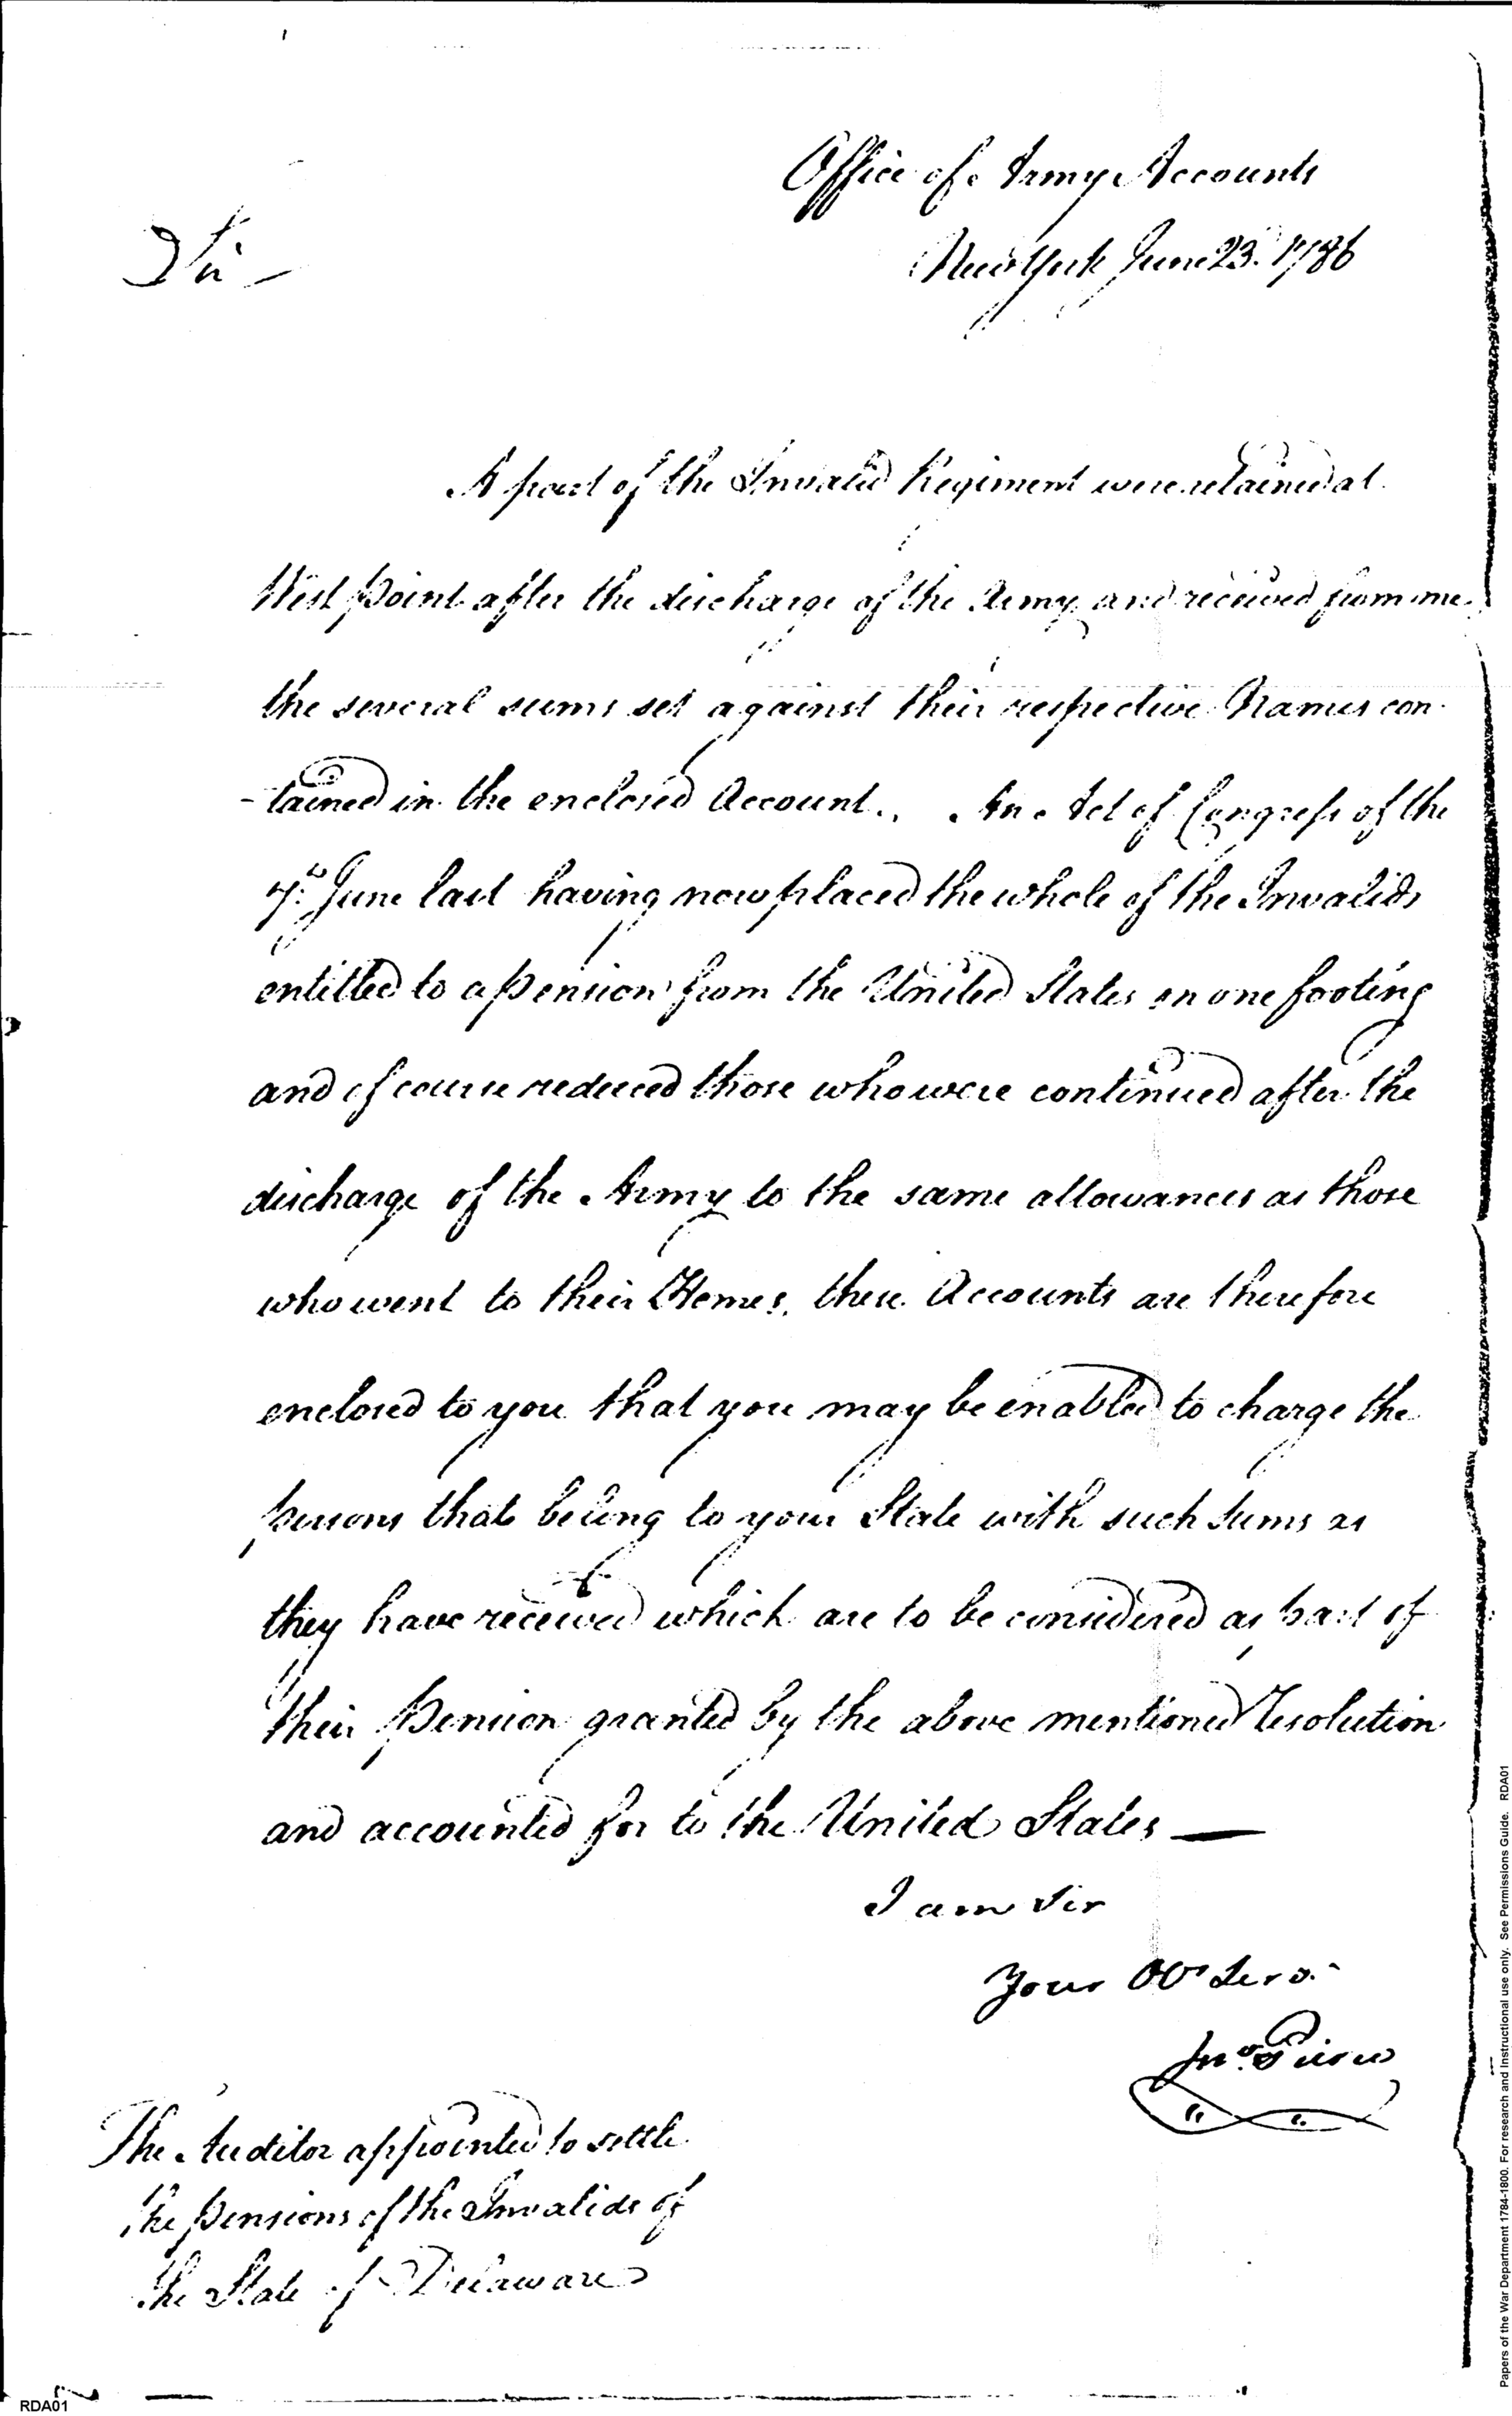 Office of Army Accounts
New York June 23. 1786
Sir -
A part of the Invalid Regiment were retained at
West point after the discharge of the Army and received from me
the several sums set against their respective Names con-
-tained in the enclosed Account. An Act of Congress of the
7th June last having now placed the whole of the Invalids
entitled to a pension from the United States on one footing
and of course reduced those who were continued after the
discharge of the Army to the same allowances as those
who went to their Homes, these Accounts are therefore
enclosed to you that you may be enabled to charge the
persons that belong to your State with such sums as
they have received which are to be considered as part of
their pension granted by the above mentioned Resolution
and accounted for to the United States —
I am Sir
Your Ob Serv.
Jno. Pierce
The Auditor appointed to settle
the pensions of the Invalids of
the State of Delaware
RDA01
Papers of the War Department 1784-1800. For research and Instructional use only. See Permissions Guide. RDA01